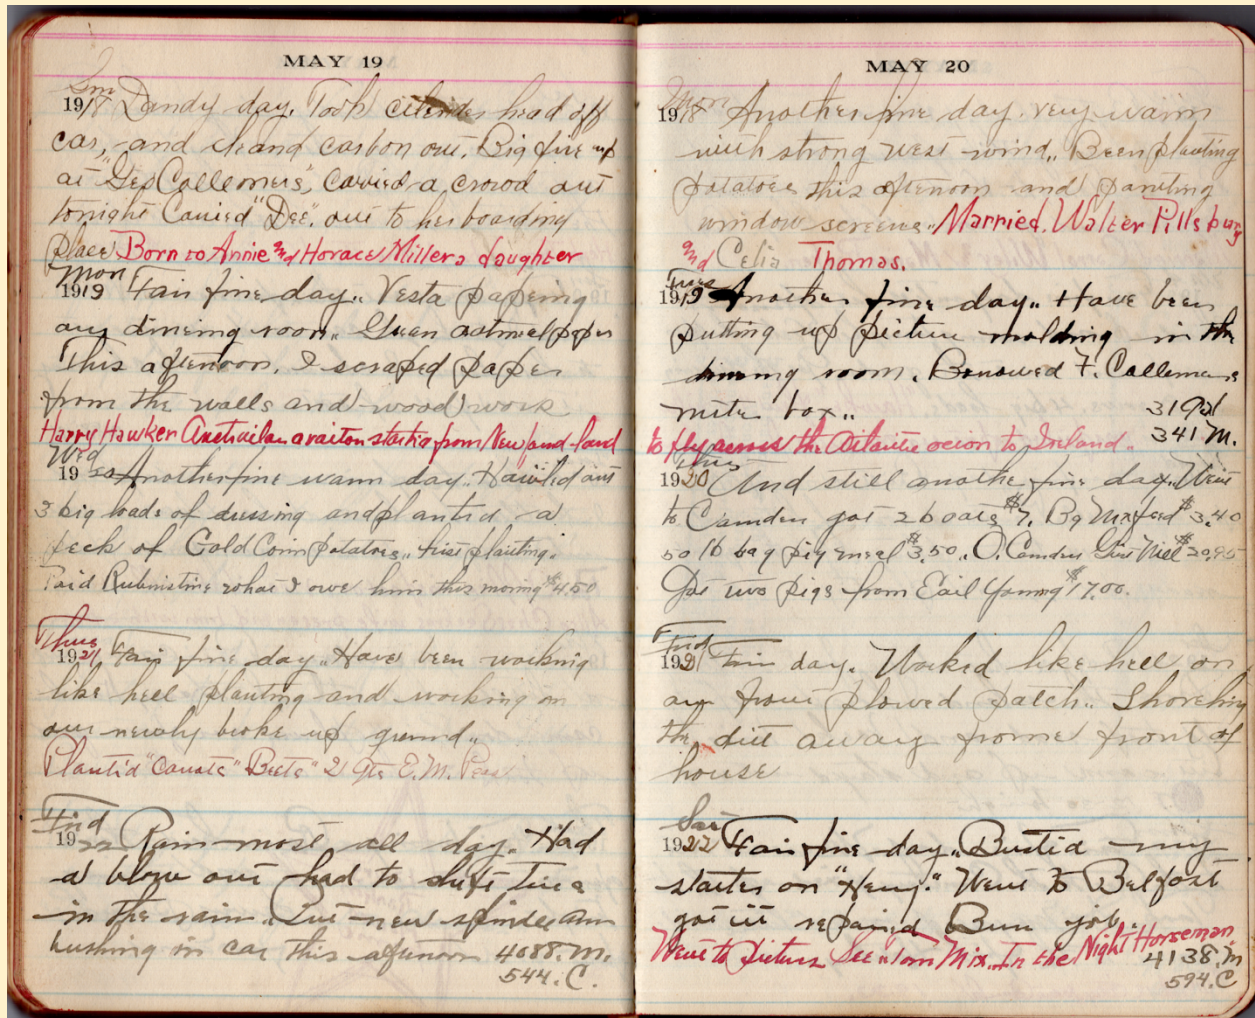 MAY 19
Sun
1918 Dandy day. Took head off
car, and cleand carbon out. Big fire up
at Geo Collemers", Carried a crowd out
tonight Carried "Dee". out to her boarding
place Born to Annie and Horace Miller a daughter
Mon
1919 Fair fine day.. Vesta papering
our dineing room.. Green oatmeal paper
This afternoon. I scraped paper
from the walls and wood work
Harry Hawker from New found-land
Wed
1920 Another fine warm day. Hawled out
3 big loads of dressing and planted a
peck of Gold Coin potatoes,, first planting.
Paid Rubinstine what I owe him this morning $4.50
Thus
1921 Fair fine day.. Have been working
like hell planting and working on
our newly broke up ground..
Plantid "Carrots" Beets" 2 qts E. M. Peas
Frid
1922 Rain most all day. Had
a blow out had to shift tire
in the rain. Put new spindle arm
bushing in car this afternoon 4088.M.
544.C.
MAY 20
Mon
1918 Another fine day. very warm
with strong west wind,, Been planting
potatoes this afternoon and painting
window screens,, Married. Walter Pillsbury
and Celia Thomas.
Tues
1919 Another fine day.. Have been
putting up picture molding in the
dining room. Borrowed F. Collemers
miter box.. 319
341 M.
to fly across the Atlantic ocion to Ireland..
Thus
1920 And still anothe fine day. Went
to Camden got 2 b oats $7. Bg Mixfeed $3.40
50 lb bag pig meal $3.50.. O. Camden $20.95
Got two pigs from Earl Young $17.00.
Frid
1921 Fair day. Worked like hell on
our front plowed patch.. Shoveling
the dirt away frome front of
house
Sat
1922 Fair fine day.. Bustid my
starter on "Henry." Went to Belfast
got it repaired Bum job
Went to picture See "Tom Mix.. In the Night Horseman"
4138.M
594.C